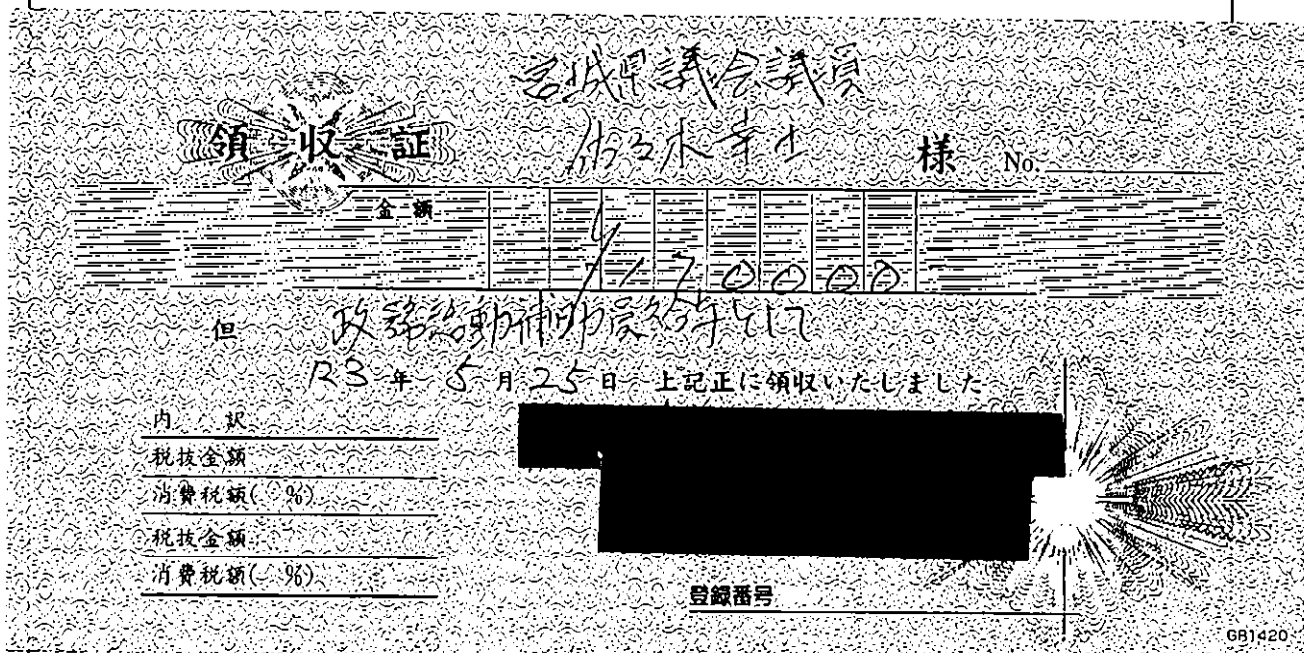 宮城県議会議員
領収証
佐々木幸士 様 No.
金額
¥170000
但 政務活動補助員給与として
R3年5月25日 上記正に領収いたしました
内訳
税抜金額
消費税額( %)
税抜金額
消費税額( %)
登録番号
GB1420